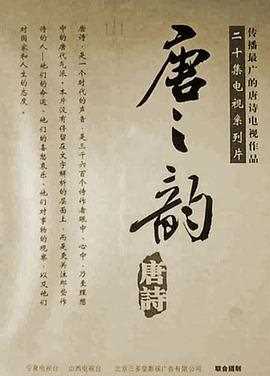 传播最广的唐诗电视作品
二十集电视系列片
唐之韵
唐詩
唐诗，是一个时代的声音，是三千六百个诗作者眼中、心中，乃至理想
中的唐代气派。本片没有停留在文字解析的层面上，而是更关注那些作
诗的人——他们的命运，他们的喜怒哀乐、他们对事物的观察，以及他们
对国家和人生的态度。
宁夏电视台 山西电视台 北京三多堂影视广告有限公司 联合摄制